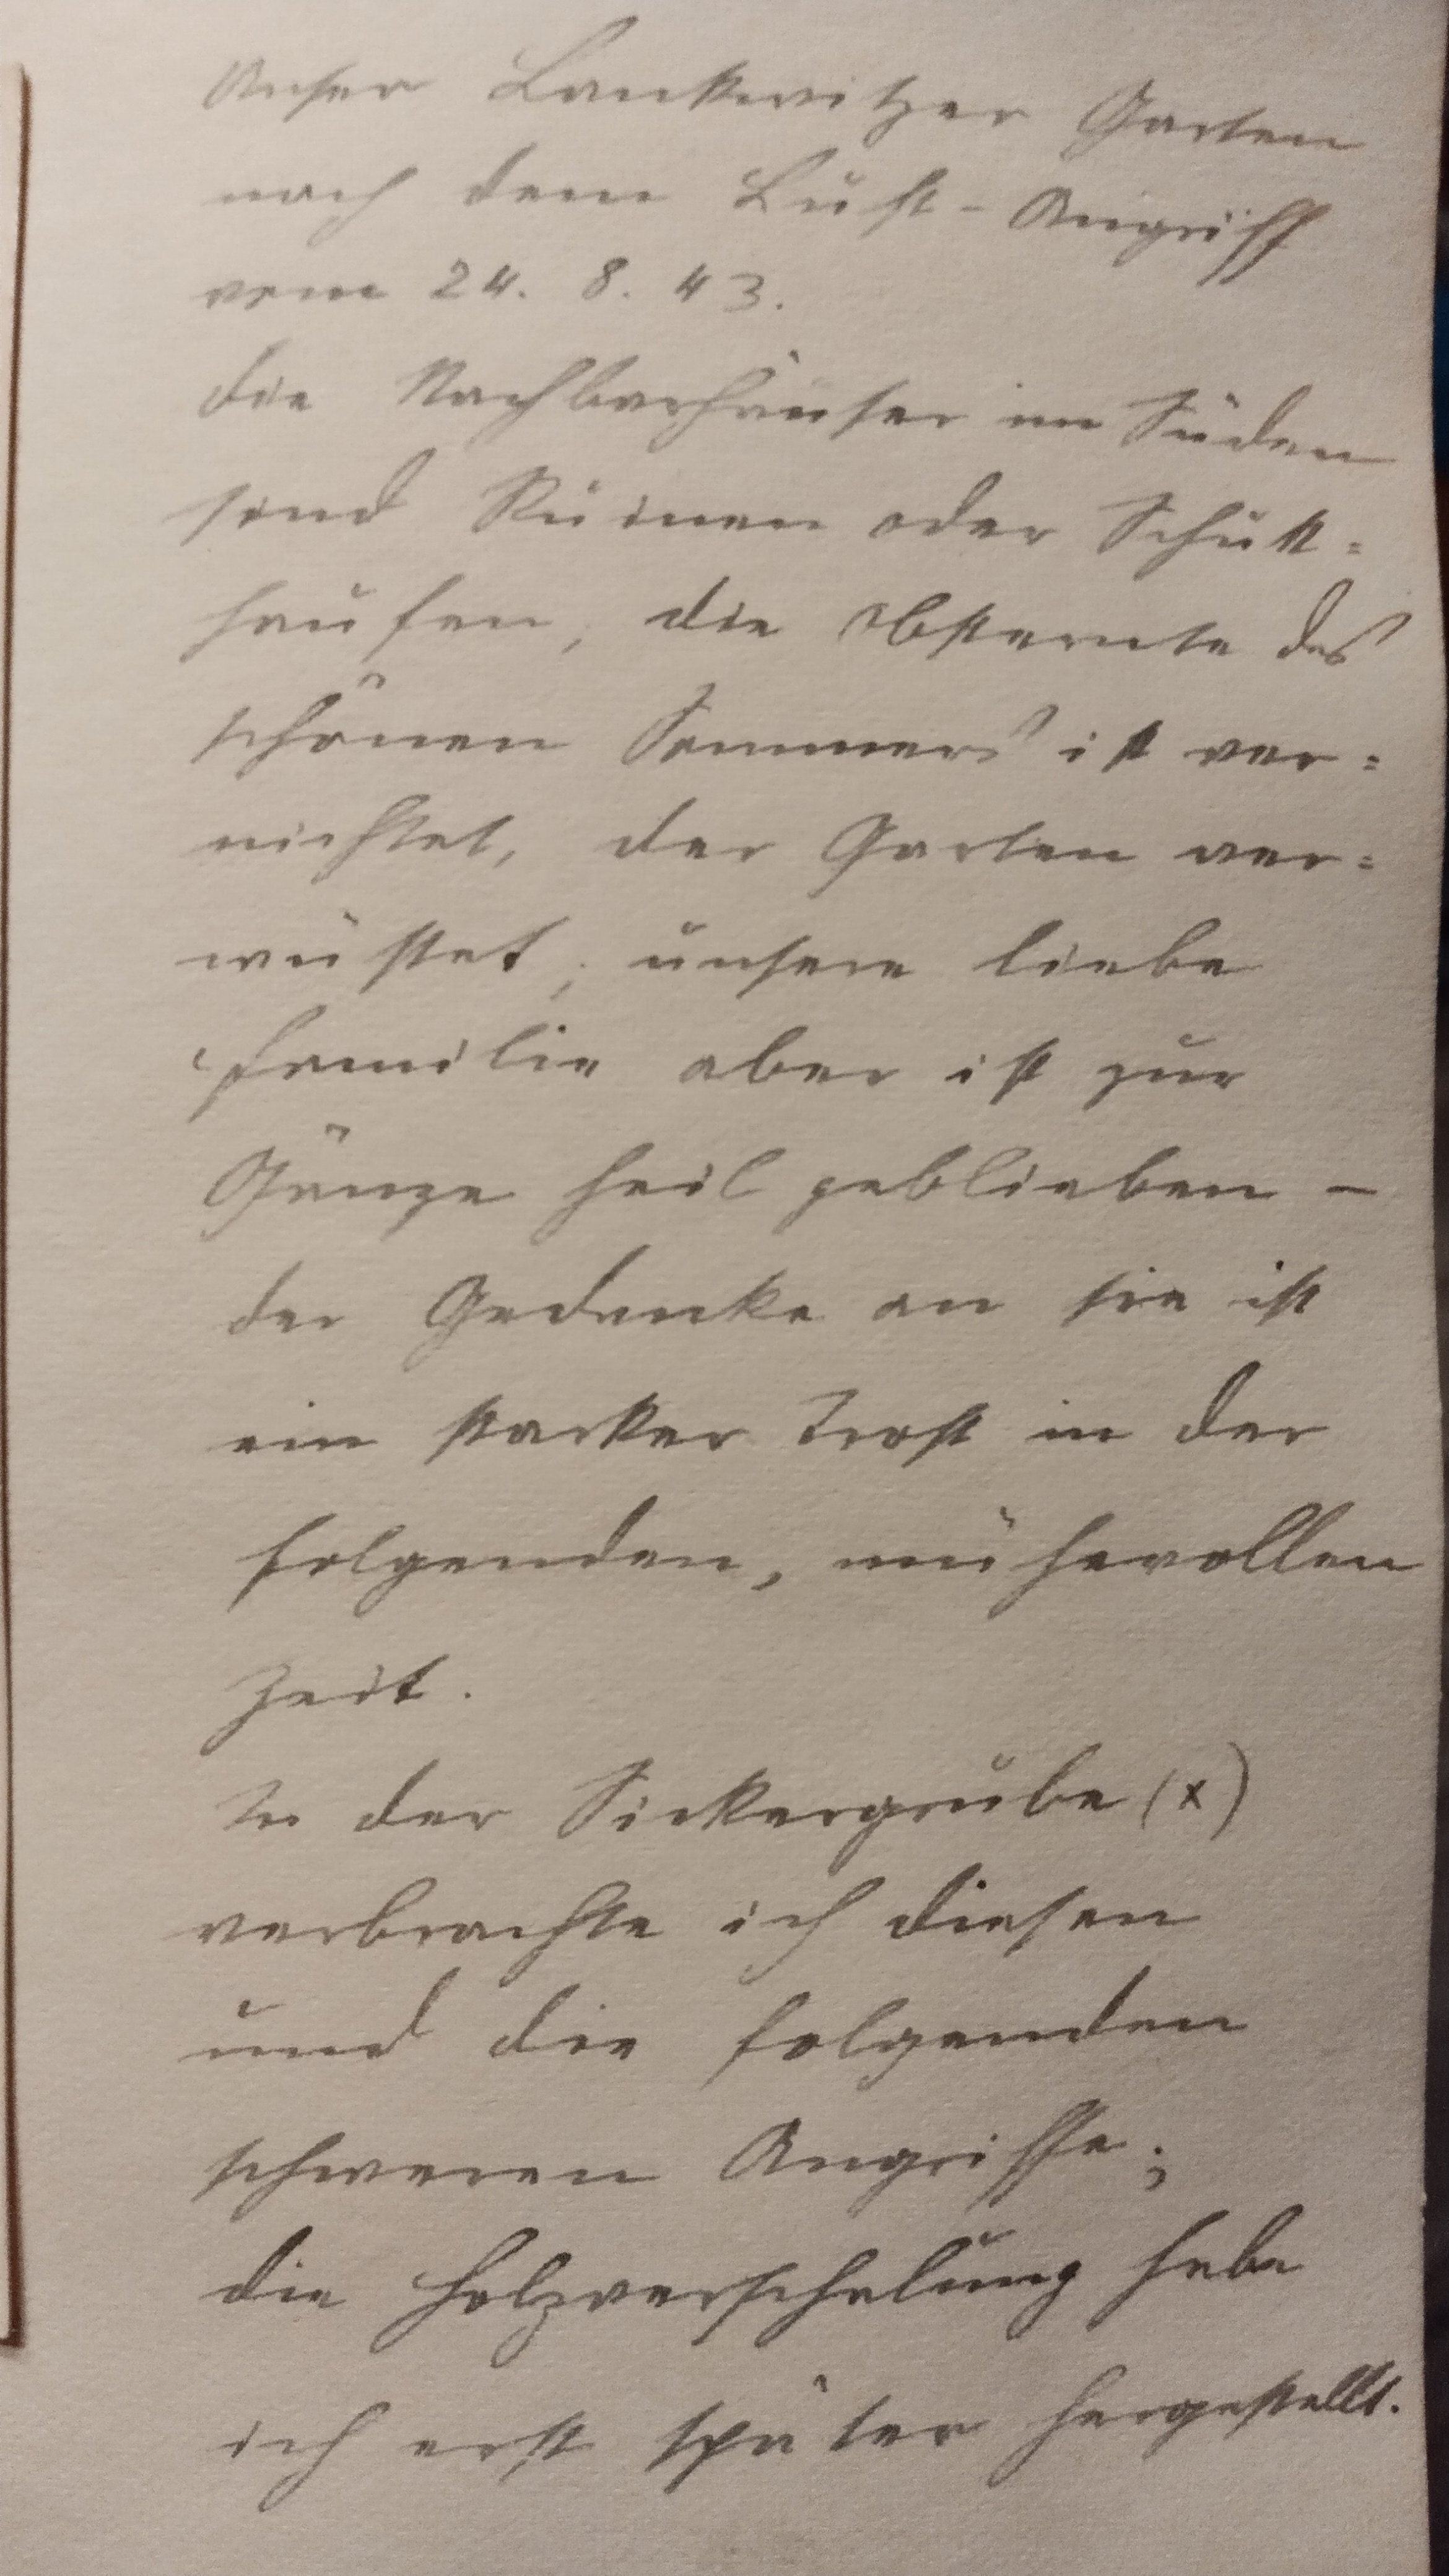 Unser Lankwitzer Garten
nach dem Luft-Angriff
vom 24. 8. 43.
Die Nachbarhäuser im Süden
sind Ruinen oder Schutt=
haufen, die Obsternte des
schönen Sommers ist ver=
nichtet, der Garten ver=
wüstet, unsere liebe
Familie aber ist zur
Gänze heil geblieben –
der Gedanke an sie ist
ein starker Trost in der
folgenden, mühevollen
Zeit.
In der Sickergrube (x)
verbrachte ich diesen
und die folgenden
schweren Angriffe;
die Holzverschalung habe
ich erst später hergestellt.